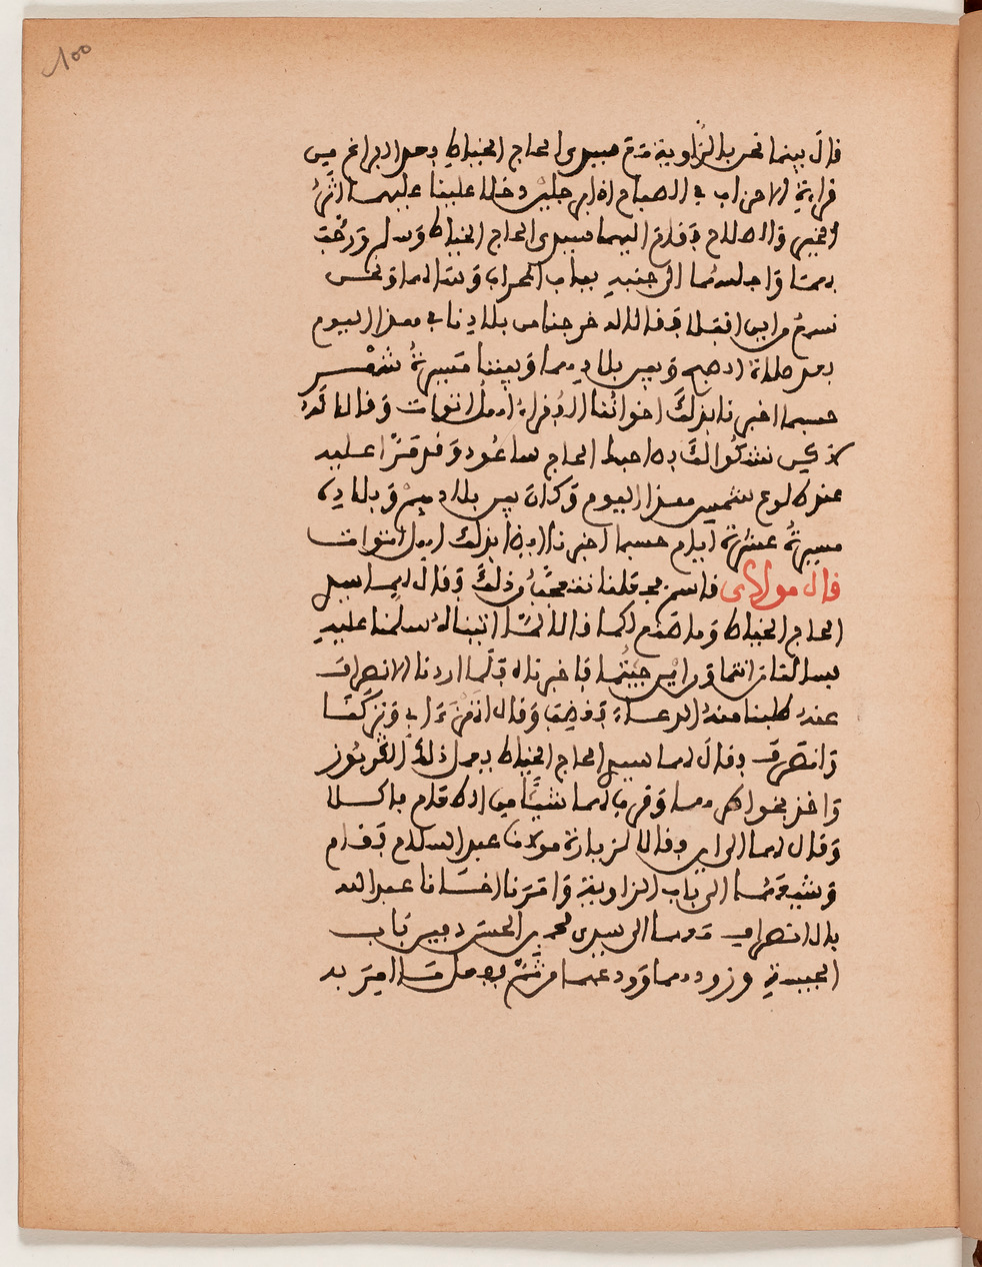 100
قال بينما نحن بالزاوية مع سيدي الحاج الخياط بعد الفراغ من
قراءة الاحزاب في الصباح اذا برجلين دخلا علينا عليهما اثر
الخير والصلاح فقام اليهما سيدي الحاج الخياط وسلم ورحب
بهما واجلسهما الى جنبه بباب المحراب وسالهما ونحن
نسمع من اين اقبلا فقالا له خرجنا من بلادنا في هذا اليوم
بعد صلاة الصبح وبين بلادهما وبيننا مسيرة شهر
حسبما اخبرنا بذلك اخواننا الفقراء اهل اتوات وقالا له
نشكوا لك صاحبك الحاج ساعود وقد مرنا عليه
عند طلوع شمس هذا اليوم وكان بين بلادهم وبلاده
مسيرة عشرة ايام حسبما اخبرنا ايضا بذلك اهل اتوات
قال مولاي قاسم فجعلنا نتعجب من ذلك وقال لهما سيدي
الحاج الخياط وما صنع لكما قالا لما اتيناه سلمنا عليه
فسالنا من انتما ومن اين جئتما فاخبرناه فلما اردنا الانصراف
عنه طلبنا منه الدعاء فغضب وقال وتركنا
وانصرف فقال لهما سيدي الحاج الخياط يفعل ذلك
واخذ بخواطرهما وقرب لهما شيئا من الطعام فاكلا
وقال لهما الى اين فقالا لزيارة مولانا عبد السلام فقام
وشيعهما الى باب الزاوية وامرنا اخانا عبد الله
بالانصراف معهما الى سيدي محمد بن الحسن دفين باب
الجيسة وزودهما وودعهما